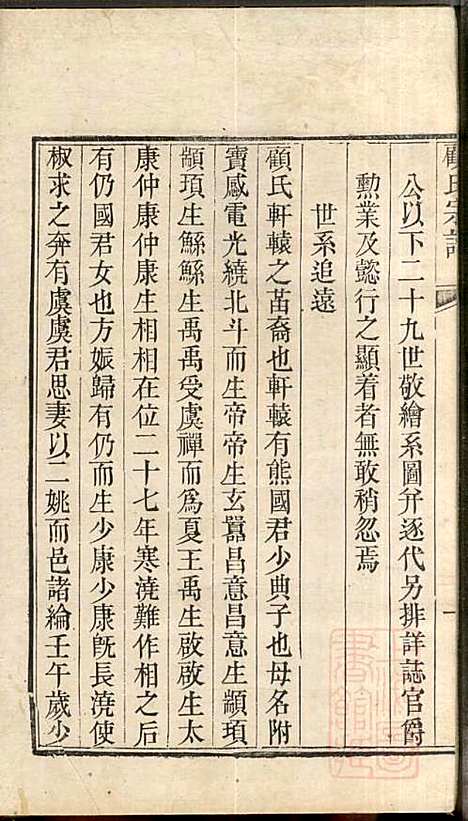 顧氏宗譜
公以下二十九世敬繪系圖弁逐代另排詳誌官爵
勲業及懿行之顯着者無敢稍忽焉
世系追遠
顧氏軒轅之苗裔也軒轅有熊國君少典子也母名附
寶感電光繞北斗而生帝帝生玄囂昌意昌意生顓頊
顓頊生鯀鯀生禹禹受虞禪而爲夏王禹生啟啟生太
康仲康仲康生相相在位二十七年寒澆難作相之后
有仍國君女也方娠歸有仍而生少康少康旣長澆使
椒求之奔有虞虞君思妻以二姚而邑諸綸壬午歲少